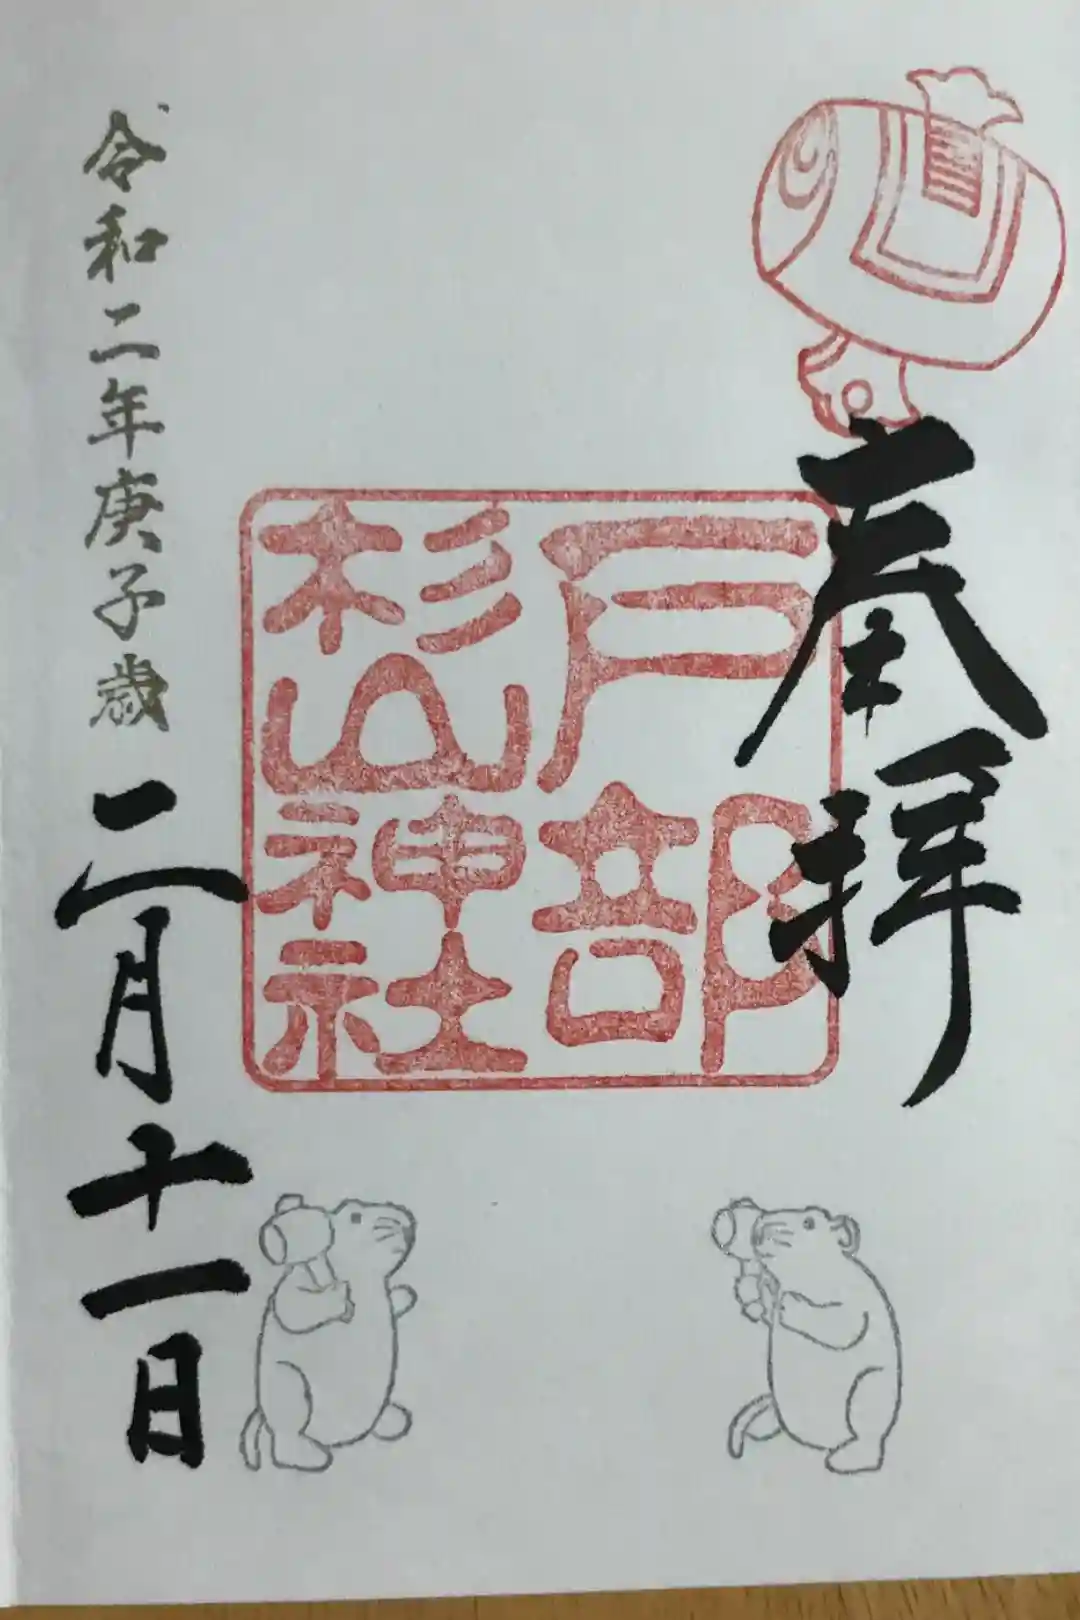 奉拝
戸部
杉山神社
令和二年庚子歳二月十一日